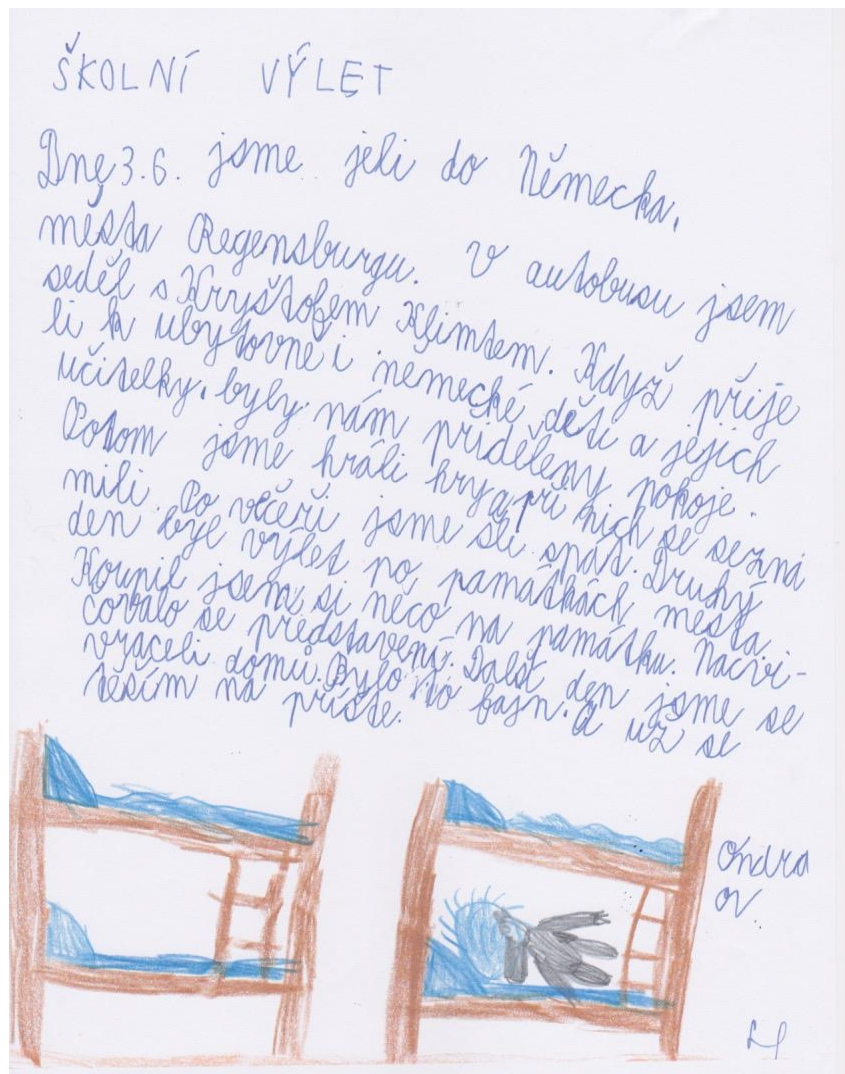 ŠKOLNÍ VÝLET
Dne 3.6. jsme jeli do Německa,
města Regensburgu. V autobusu jsem
seděl s Kryštofem Klimtem. Když přije
li k ubytovně i německé děti a jejich
učitelky, byly nám přiděleny pokoje.
Potom jsme hráli hry a při nich se sezná
mili. Po večeři jsme šli spát. Druhý
den byl výlet po památkách města.
Koupil jsem si něco na památku. Nacvi-
covalo se představení. Další den jsme se
vraceli domů. Bylo to fajn. A už se
těším na příště.
Ondra